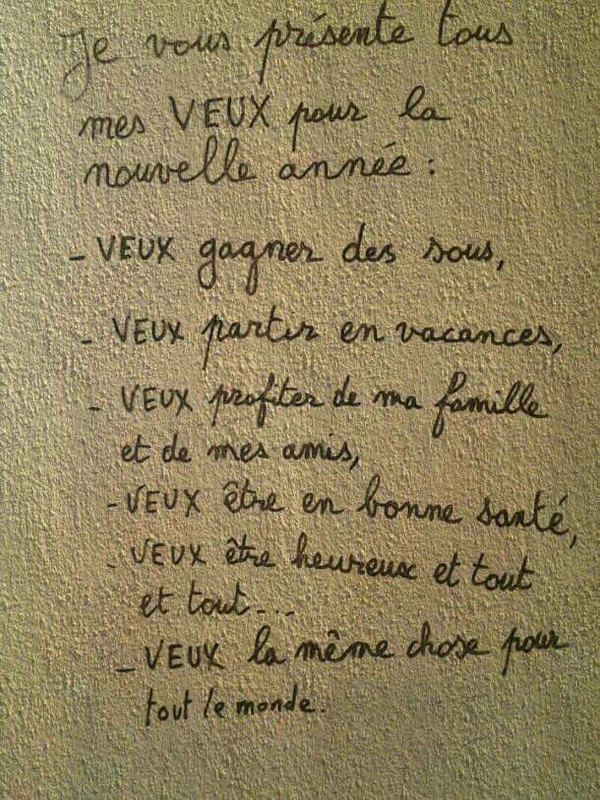 Je vous présente tous
mes VEUX pour la
nouvelle année :
- VEUX gagner des sous,
- VEUX partir en vacances,
- VEUX profiter de ma famille
et de mes amis,
- VEUX être en bonne santé,
- VEUX être heureux et tout
et tout...
- VEUX la même chose pour
tout le monde.